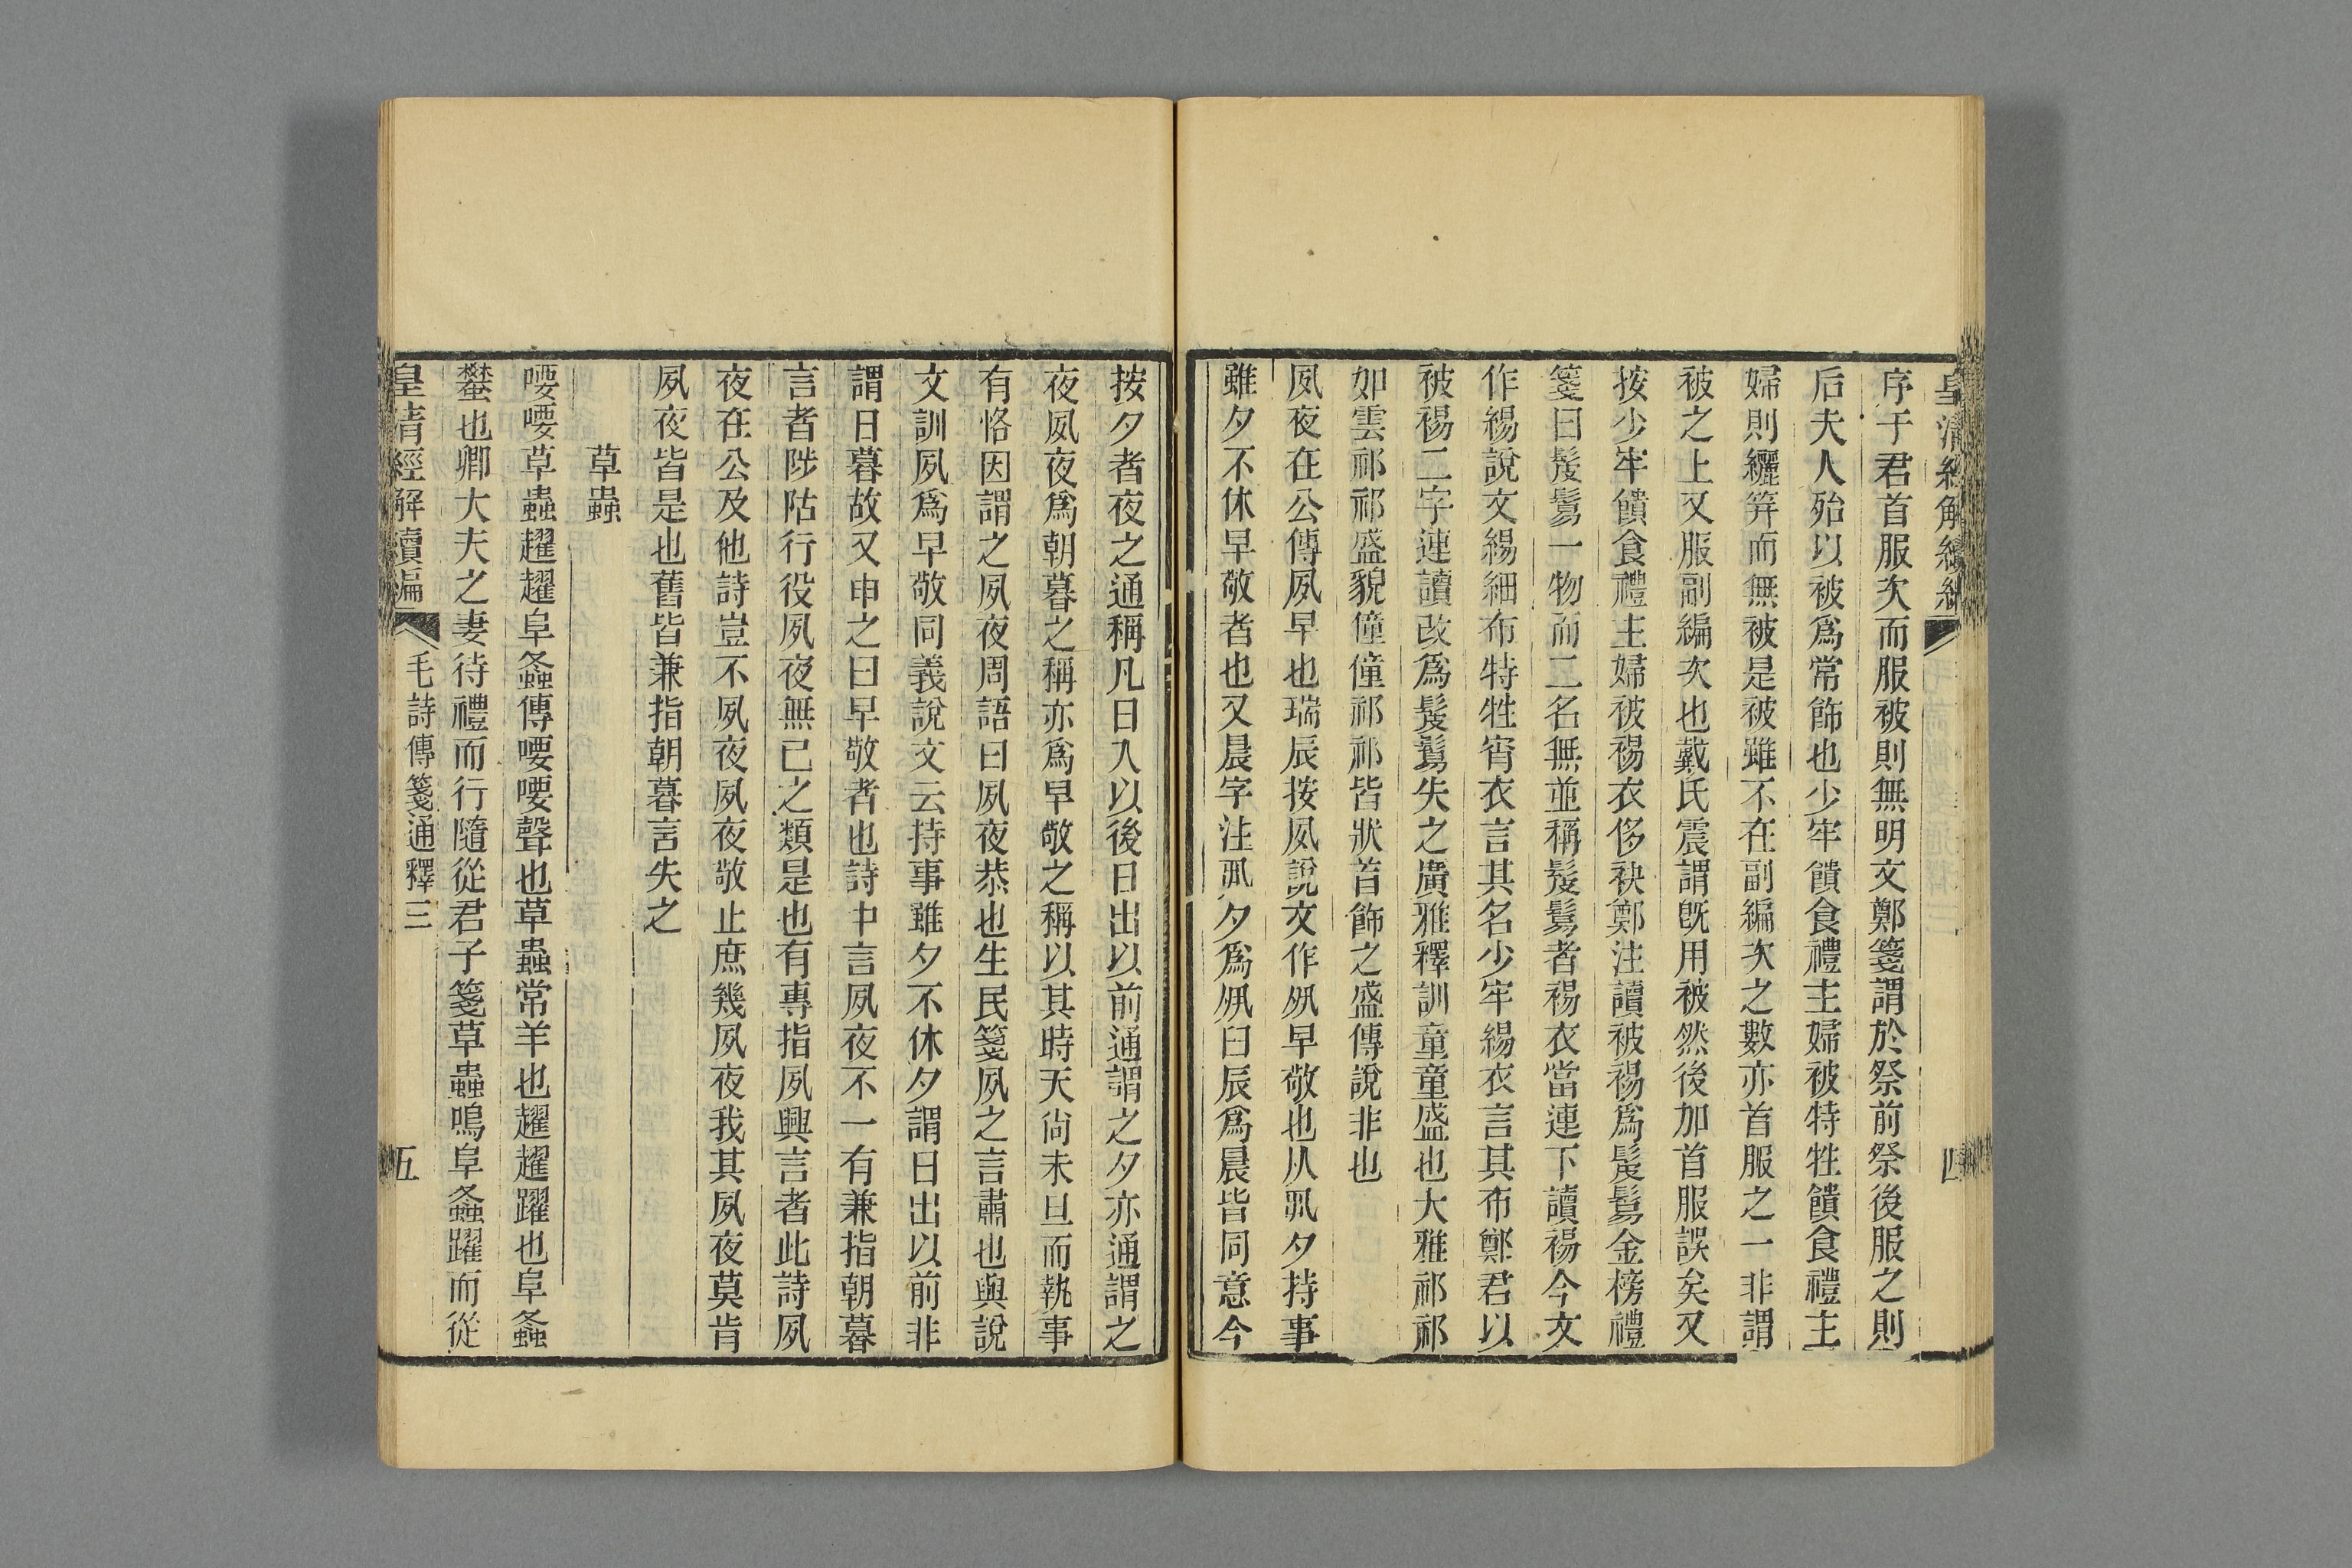 皇清經解續編
四
序于君首服次而服被則無明文鄭箋謂於祭前祭後服之則
后夫人殆以被爲常飾也少牢饋食禮主婦被特牲饋食禮主
婦則纚笄而無被是被雖不在副編次之數亦首服之一非謂
被之上又服副編次也戴氏震謂旣用被然後加首服誤矣又
按少牢饋食禮主婦被裼衣侈袂鄭注讀被裼爲髲鬄金榜禮
箋曰髲鬄一物而二名無並稱髲鬄者裼衣當連下讀裼今文
作緆說文緆細布特牲宵衣言其名少牢緆衣言其布鄭君以
被裼二字連讀改爲髲鬄失之廣雅釋訓童童盛也大雅祁祁
如雲祁祁盛貌僮僮祁祁皆狀首飾之盛傳說非也
夙夜在公傳夙早也瑞辰按夙說文作𡖊早敬也从丮夕持事
雖夕不休早敬者也又晨字注丮夕爲𡖊臼辰爲晨皆同意今
按夕者夜之通稱凡日入以後日出以前通謂之夕亦通謂之
夜夙夜爲朝暮之稱亦爲早敬之稱以其時天尙未旦而執事
有恪因謂之夙夜周語曰夙夜恭也生民箋夙之言肅也與說
文訓夙爲早敬同義說文云持事雖夕不休夕謂日出以前非
謂日暮故又申之曰早敬者也詩中言夙夜不一有兼指朝暮
言者陟岵行役夙夜無已之類是也有專指夙興言者此詩夙
夜在公及他詩豈不夙夜夙夜敬止庶幾夙夜我其夙夜莫肯
夙夜皆是也舊皆兼指朝暮言失之
草蟲
喓喓草蟲趯趯阜螽傳喓喓聲也草蟲常羊也趯趯躍也阜螽
蠜也卿大夫之妻待禮而行隨從君子箋草蟲鳴阜螽躍而從
皇清經解續編
毛詩傳箋通釋三
五